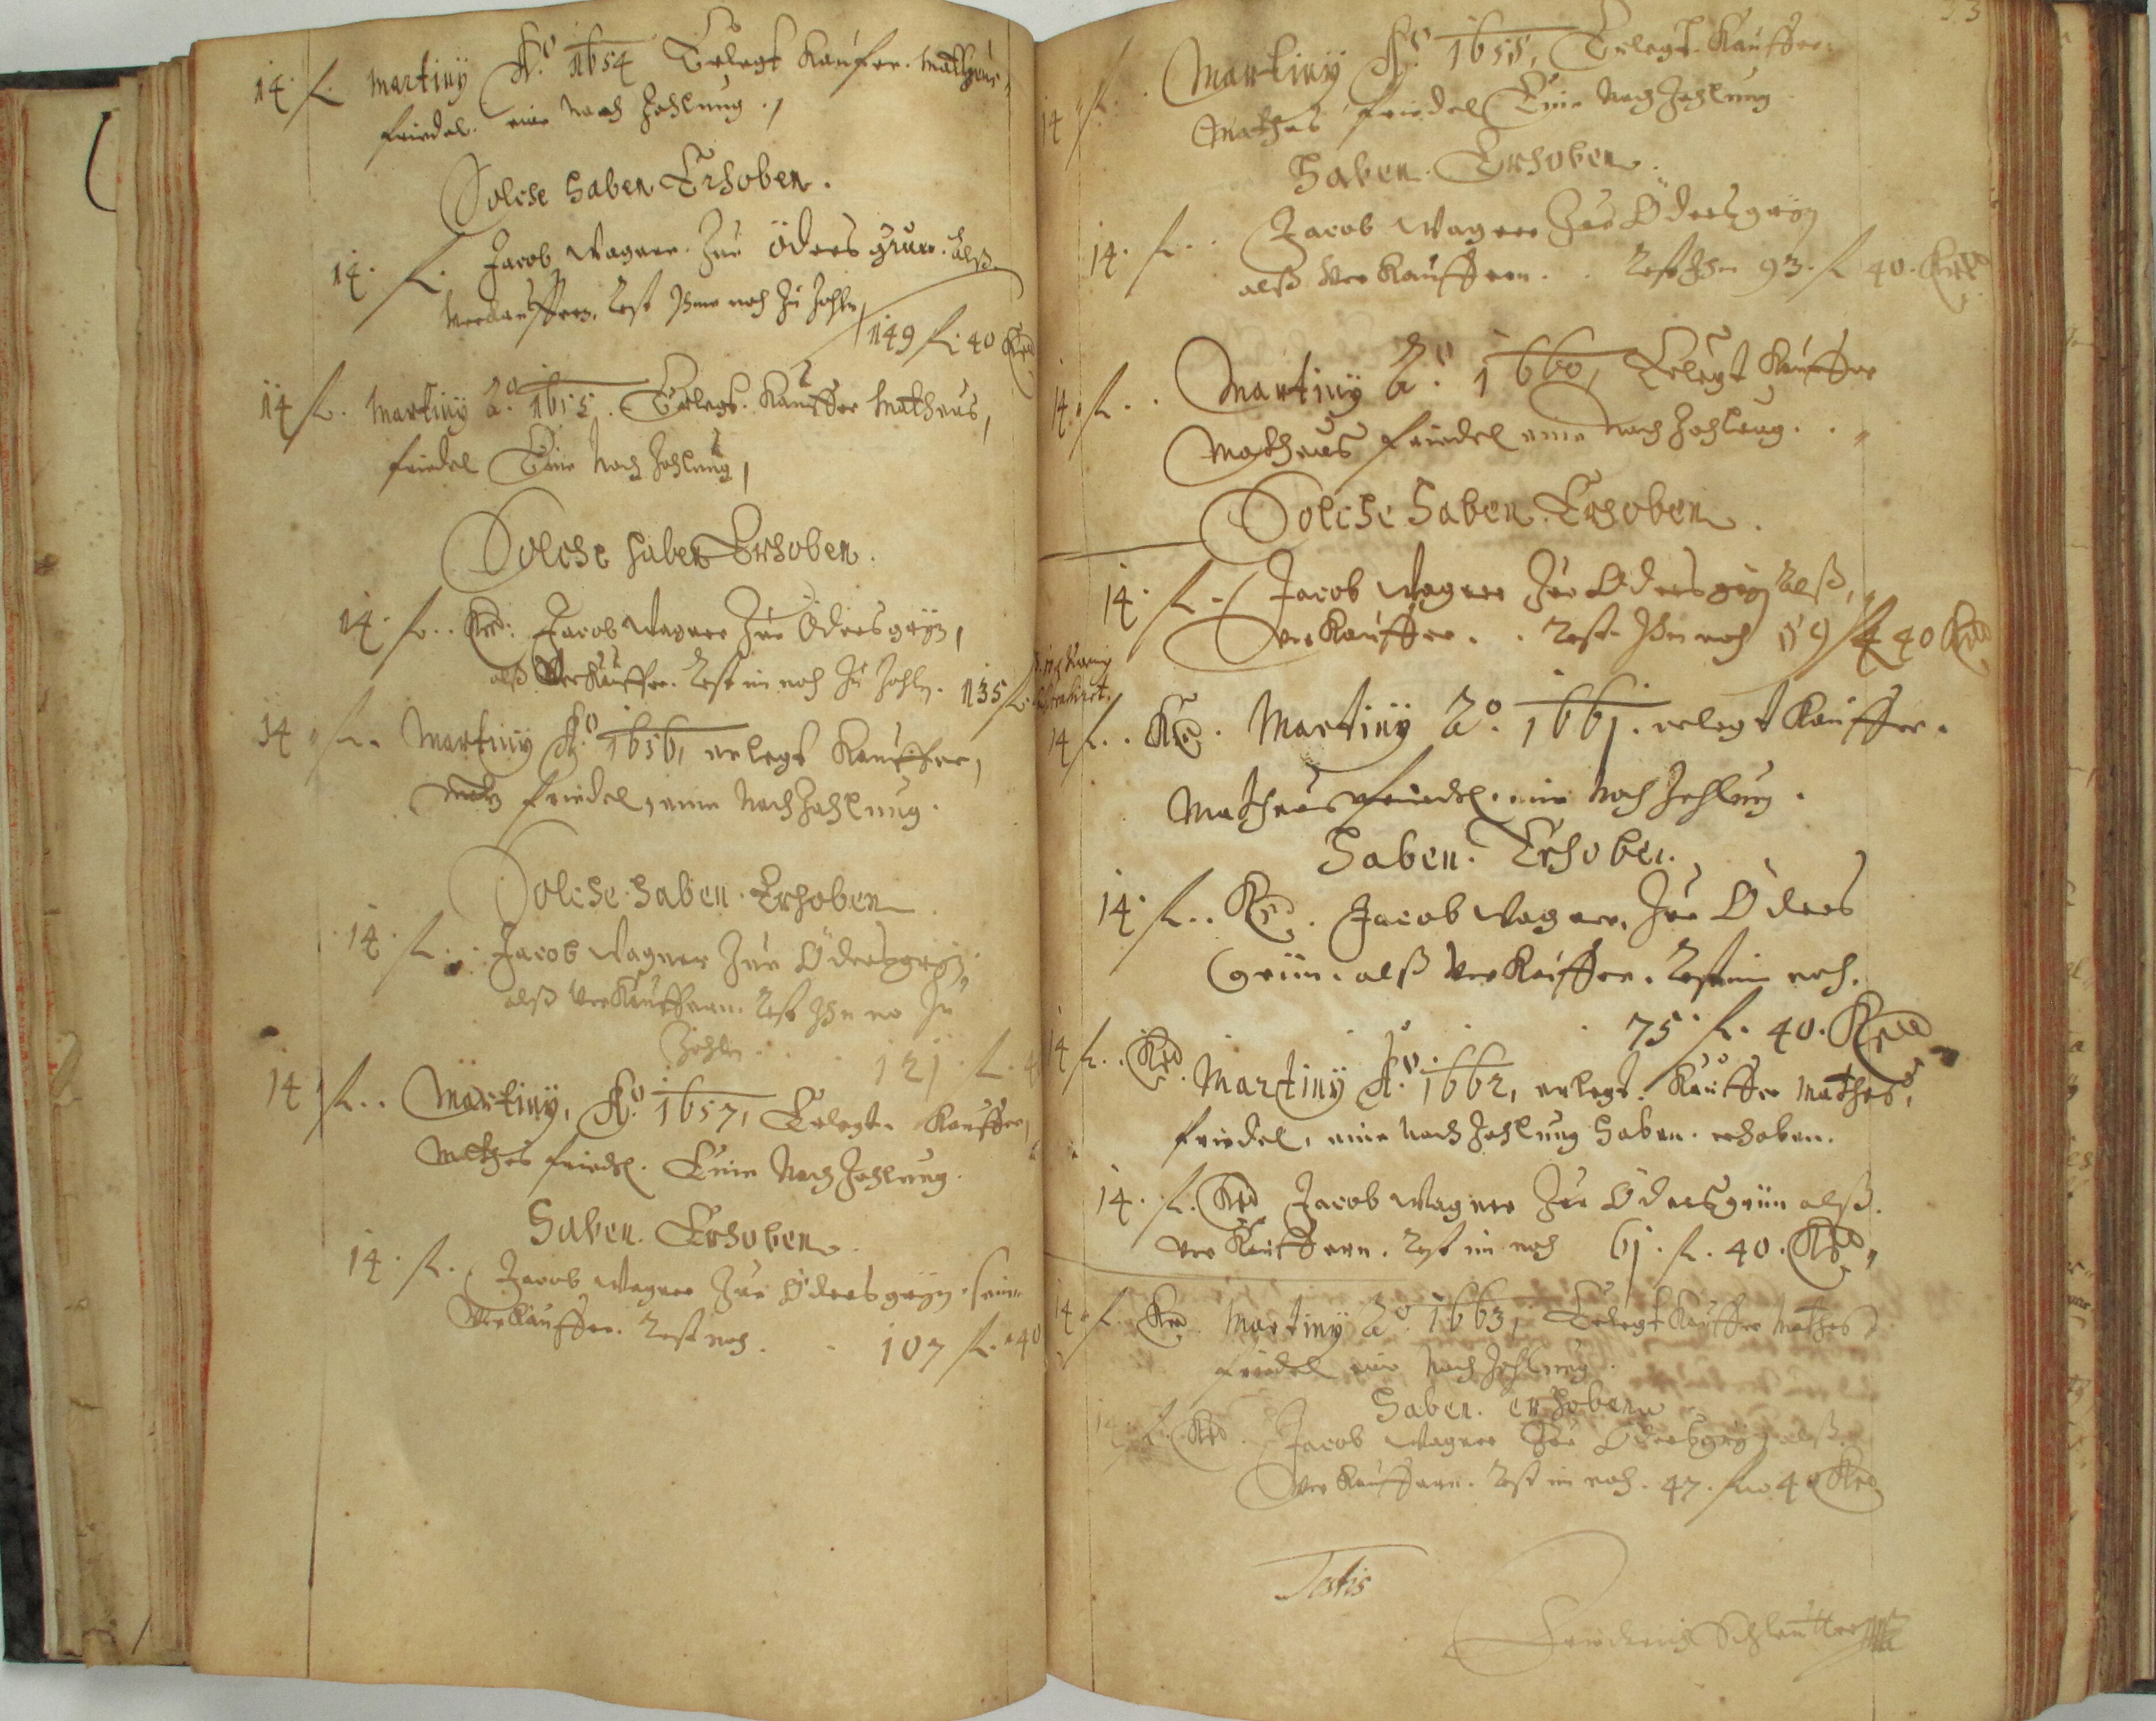 14 f. Martiny Aõ 1654 Erlegt Kaufer Matheus
friedel. eine nach Zahlung.,
Solche haben Erhoben.
14. f. Jacob Wagner Zur Öders grun. alß
Verkauffern, Rest Ihme noch Zu Zahln
149 f. 40 Kr
14 f. Martiny Aõ 1655. Erlegt. Kauffer Matheus,
friedel Eine Nach Zahlung,
Solche haben Erhoben.
14. f.. Kr: Jacob Wagner Zur Ödersgryn,
alß Verkauffer. Rest im noch Zu Zahln. 135 f.
14 f.. Martiny Aõ 1656, erlegt Kauffer,
Friedel, eine Nach Zahlung.
Solche. haben. Erhoben
14. f.. Jacob Wagner Zur Ödersgryn.
alß Verkauffern. Rest Ihn no Zu
Zahln . . . 121. f. 4
14 f.. Martiny, Aõ 1657, Erlegt. Kauffer,
Mathes friedel. Eine Nach Zahlung.
Haben. Erhoben.
14. f.. Jacob Wagner Zur Ödersgryn. sein
Verkauffer. Rest noch. . 107 f. 40
33
14 f. Martiny Aõ 1658, Erlegt. Kauffer.
Mathes friedel Eine Nach Zahlung
Haben. Erhoben.
14. f.. Jacob Wagner Zur Ödersgryn
alß Verkauffern. . Rest Ihn 93. f 40. Kr
14. f.. Martiny Aõ. 1660, Erlegt Kauffer
Matheus friedel eine nach Zahlung. . "
Solche. Haben. Erhoben.
14. f.. Jacob Wagner Zur Ödersgryn alß,
Verkauffer. . Rest Ihn noch 89 f 40 Kr
14 f.. Kr. Martiny Aõ. 1661. erlegt Kauffer.
Matheus friedel. eine Nach Zahlung.
Haben. Erhoben.
14. f.. Kr. Jacob Wagner. Zur Öders
grün. alß Verkauffer. Rest im noch.
75. f. 40. Kr
14 f.. Kr. Martiny Aõ. 1662, erlegt. Kauffer Mathes,
friedel, eine Nach Zahlung Haben. erhoben.
14. f. Kr Jacob Wagner Zur Ödersgrün alß.
Verkauffern. Rest im noch 61. f. 40. Kr "
14 f. Kr. Martiny Aõ. 1663, Erlegt Kauffer Mathes
friedel eine Nach Zahlung.
Haben. erhoben
14 f. Kr. Jacob Wagner Zur Ödersgryn alß.
Verkauffern. Rest im noch. 47. f. 40 Kr
Testis